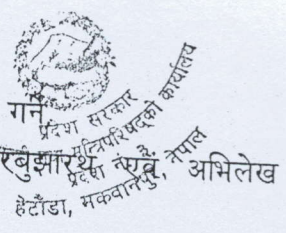 गर्ने
प्रदेश सरकार
मन्त्रिपरिषद्को कार्यालय
रबुझारथ एवं अभिलेख
प्रदेश नं. ३, नेपाल
हेटौंडा, मकवानपुर,